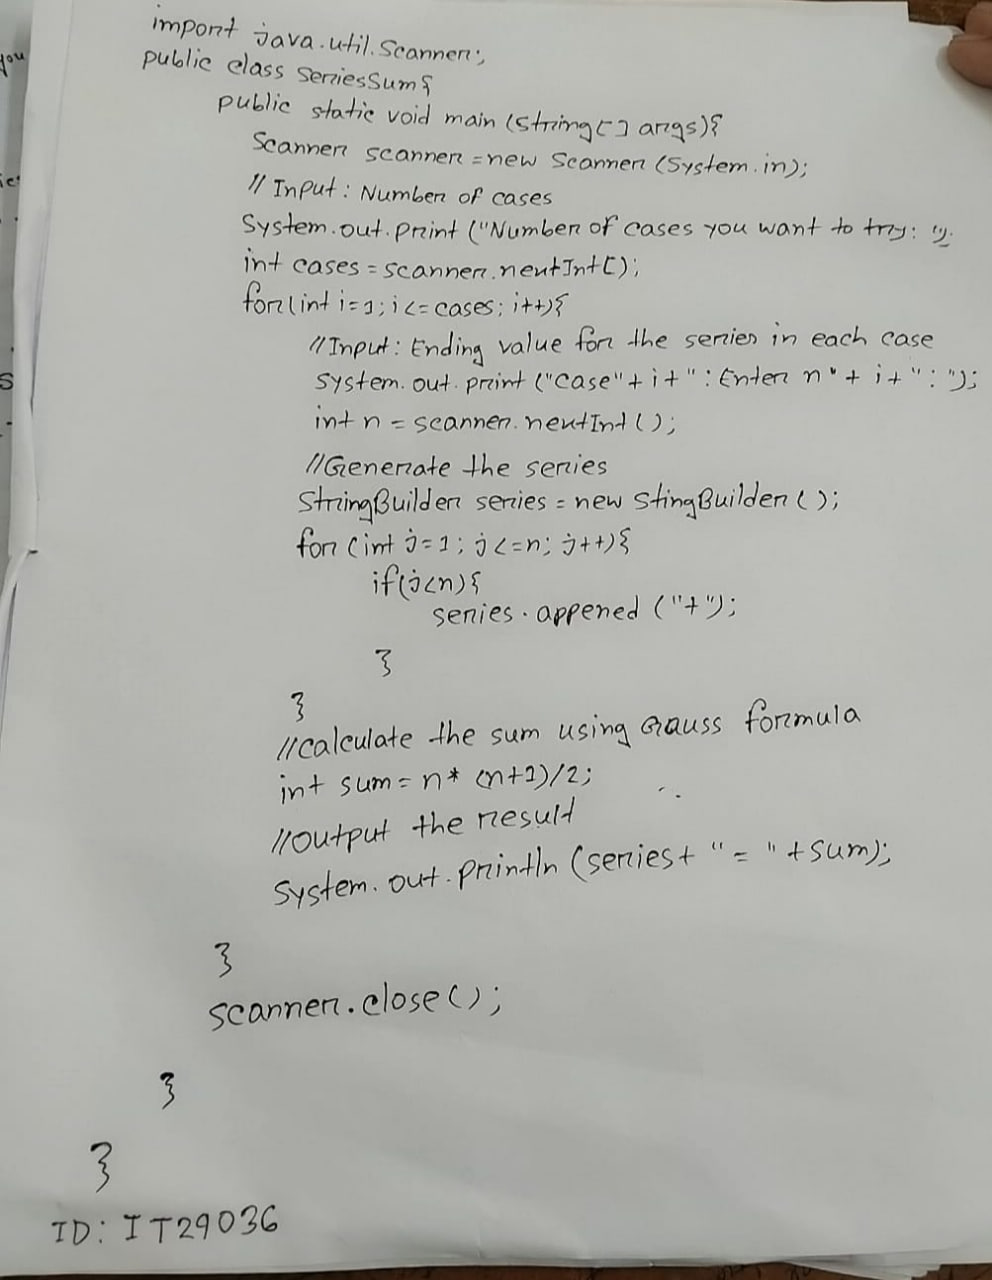 you
import java.util.Scanner;
public class SeriesSum{
public static void main (String[] args){
Scanner scanner = new Scanner (System.in);
// Input : Number of cases
System.out.print ("Number of cases you want to try: ");
int cases = scanner.neutInt[);
for(int i=1; i<=cases; i++){
// Input : Ending value for the series in each case
System.out.print ("case" + i + " : Enter n" + i + " : ");
int n = scanner.neutInt();
//Generate the series
StringBuilder series = new StingBuilder();
for (int j=1; j<=n; j++){
if(j<n){
series.appened ("+");
}
}
//calculate the sum using Gauss formula
int sum = n* (n+1)/2;
//output the result
System.out.println (series+ " = " + sum);
}
scanner.close();
}
}
ID: IT29036